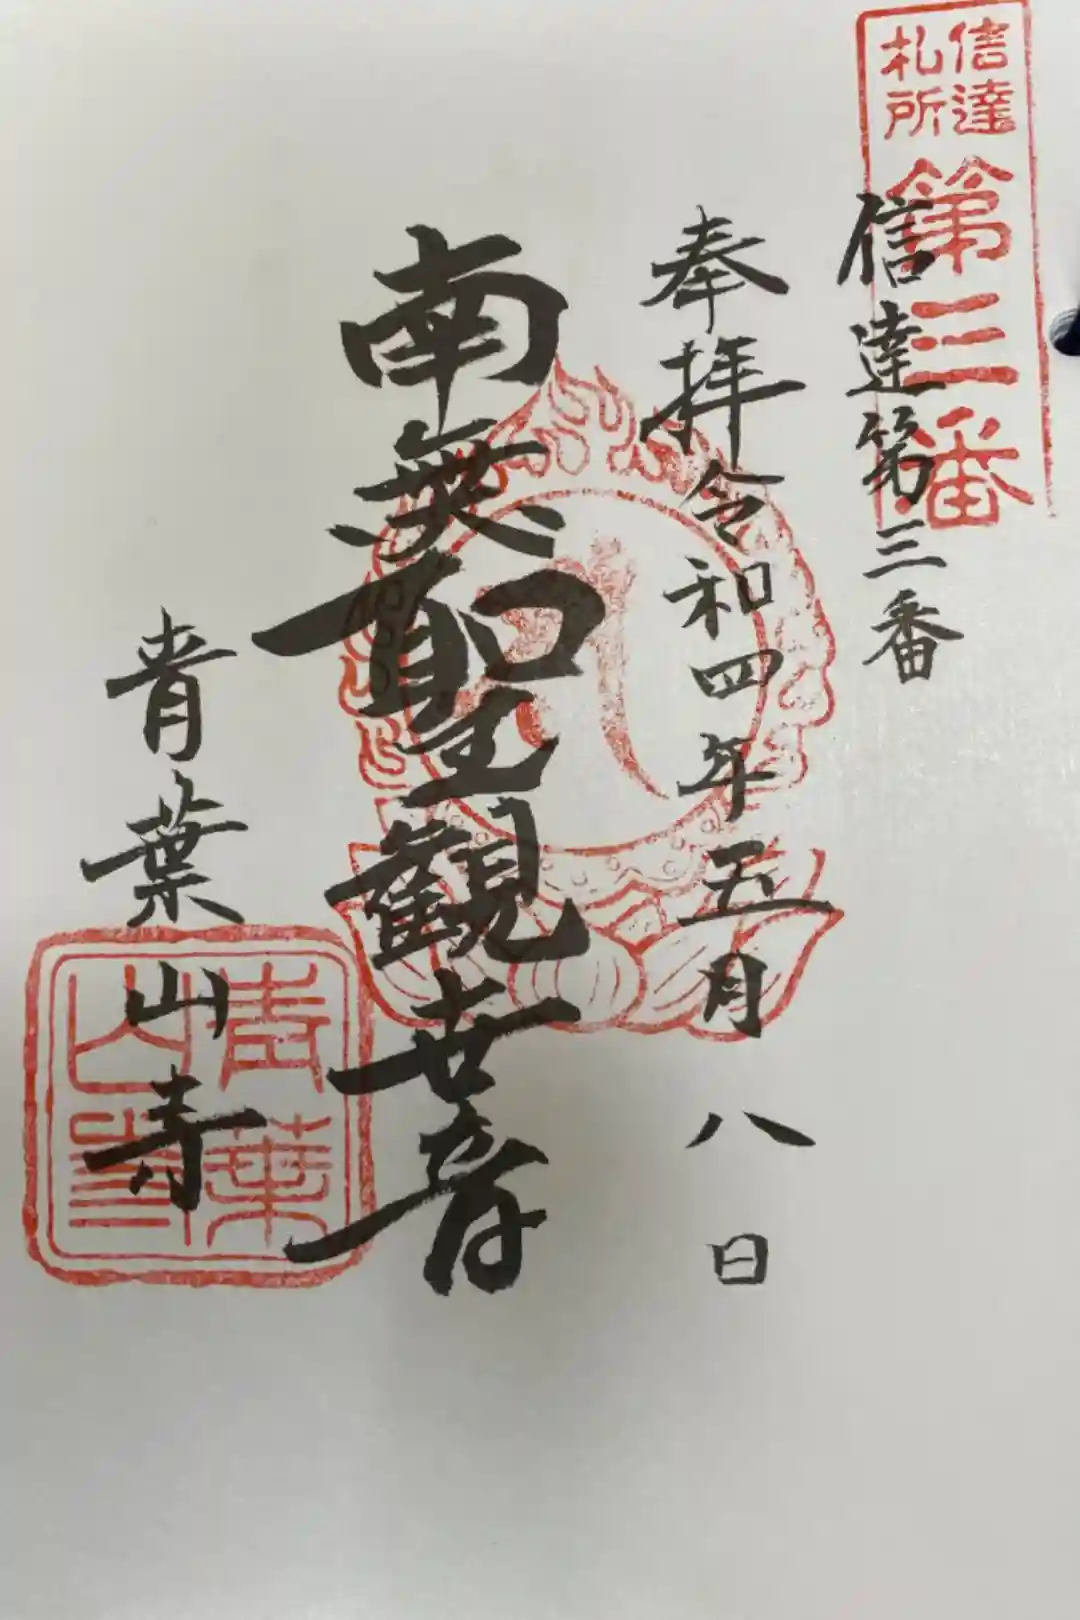 信達
札所
第三番
信達第三番
奉拝令和四年五月八日
南無聖観世音
青葉山寺
青葉
山寺